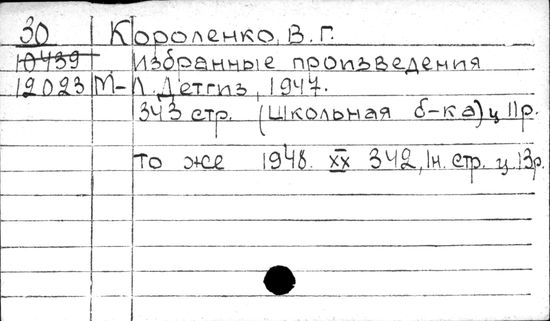 30 Короленко, В. Г.
10439 Избранные произведения
12023 М-Л. Детгиз, 1947.
343 стр. (Школьная б-ка) ц 11р.
То же 1948. XX 342, 1н. стр. ц 13р.